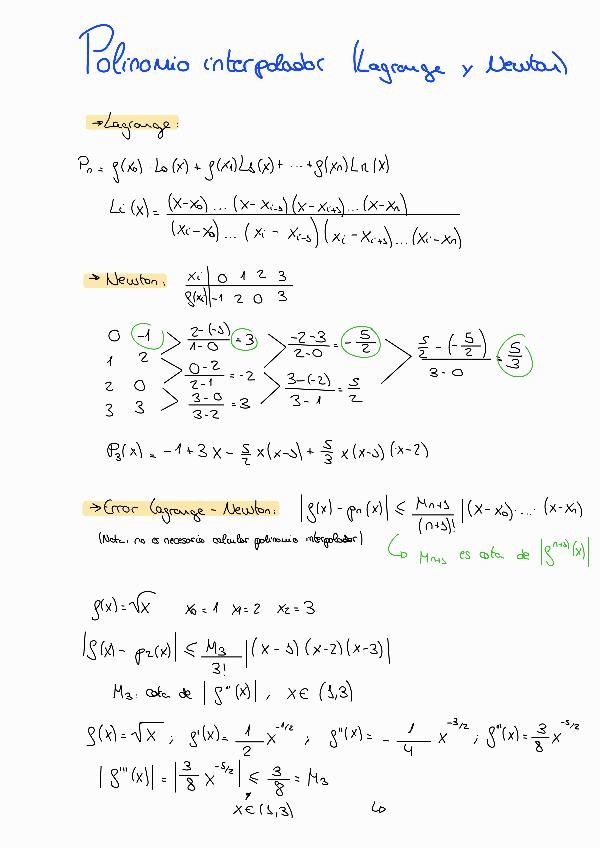 Polinomio interpolador (Lagrange y Newton)
→ Lagrange:
Pn = f(x0)·L0(x) + f(x1)L1(x) + ... + f(xn)Ln(x)
Li(x) = (x-x0)...(x-xi-1)(x-xi+1)...(x-xn) / (xi-x0)...(xi-xi-1)(xi-xi+1)...(xi-xn)
→ Newton: xi | 0 1 2 3
f(xi) | -1 2 0 3
0 -1 2-(-1)/1-0 = 3 -2-3/2-0 = -5/2 5/2-(-5/2)/3-0 = 5/3
1 2 0-2/2-1 = -2 3-(-2)/3-1 = 5/2
2 0 3-0/3-2 = 3
3 3
P3(x) = -1+3x-5/2 x(x-1)+5/3 x(x-1)(x-2)
→ Error Lagrange - Newton: |f(x)-pn(x)| ≤ Mn+1/(n+1)! |(x-x0)·...·(x-xn)
(Nota: no es necesario calcular polinomio interpolador)
↳ Mn+1 es cota de |f^(n+1)(x)|
f(x)=√x x0=1 x1=2 x2=3
|f(x)-p2(x)| ≤ M3/3! |(x-1)(x-2)(x-3)|
M3: cota de |f'''(x)|, x∈(1,3)
f(x)=√x; f'(x)=1/2 x^-1/2; f''(x)=-1/4 x^-3/2; f'''(x)=3/8 x^-5/2
|f'''(x)| = |3/8 x^-5/2| ≤ 3/8 = M3
x∈(1,3) ↳